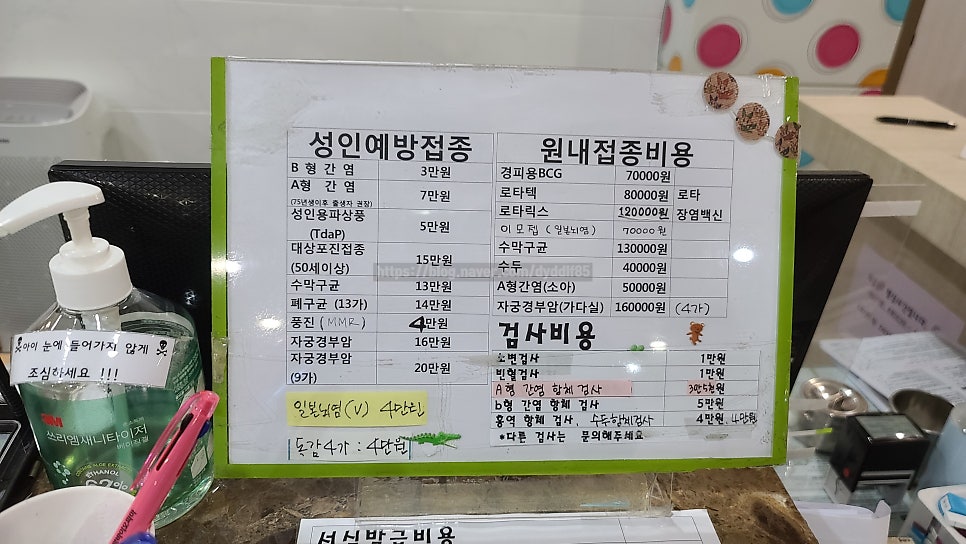 성인예방접종
B 형 간 염 3만원
A형 간 염 7만원
(75년생이후 출생자 권장)
성인용파상풍 5만원
(TdaP)
대상포진접종 15만원
(50세이상)
수막구균 13만원
폐구균 (13가) 14만원
풍진 (MMR) 4만원
자궁경부암 16만원
자궁경부암 20만원
(9가)
일본뇌염(V) 4만원
독감4가 : 4만원
원내접종비용
경피용BCG 70000원
로타텍 80000원 로타
로타릭스 120000원 장염백신
이모젭 (일본뇌염) 70000원
수막구균 130000원
수두 40000원
A형간염(소아) 50000원
자궁경부암(가다실) 160000원 (4가)
검사비용
소변검사 1만원
빈혈검사 1만원
A형 간염 항체 검사 3만5천원
b형 간염 항체 검사 5만원
홍역 항체 검사, 수두항체검사 4만원, 4만원
*다른 검사는 문의해주세요
https://blog.naver.com/dyddlf85
아이 눈에 들어가지 않게
조심하세요 !!!
3M
쓰리엠새니타이저
ETHANOL
서식발급비용